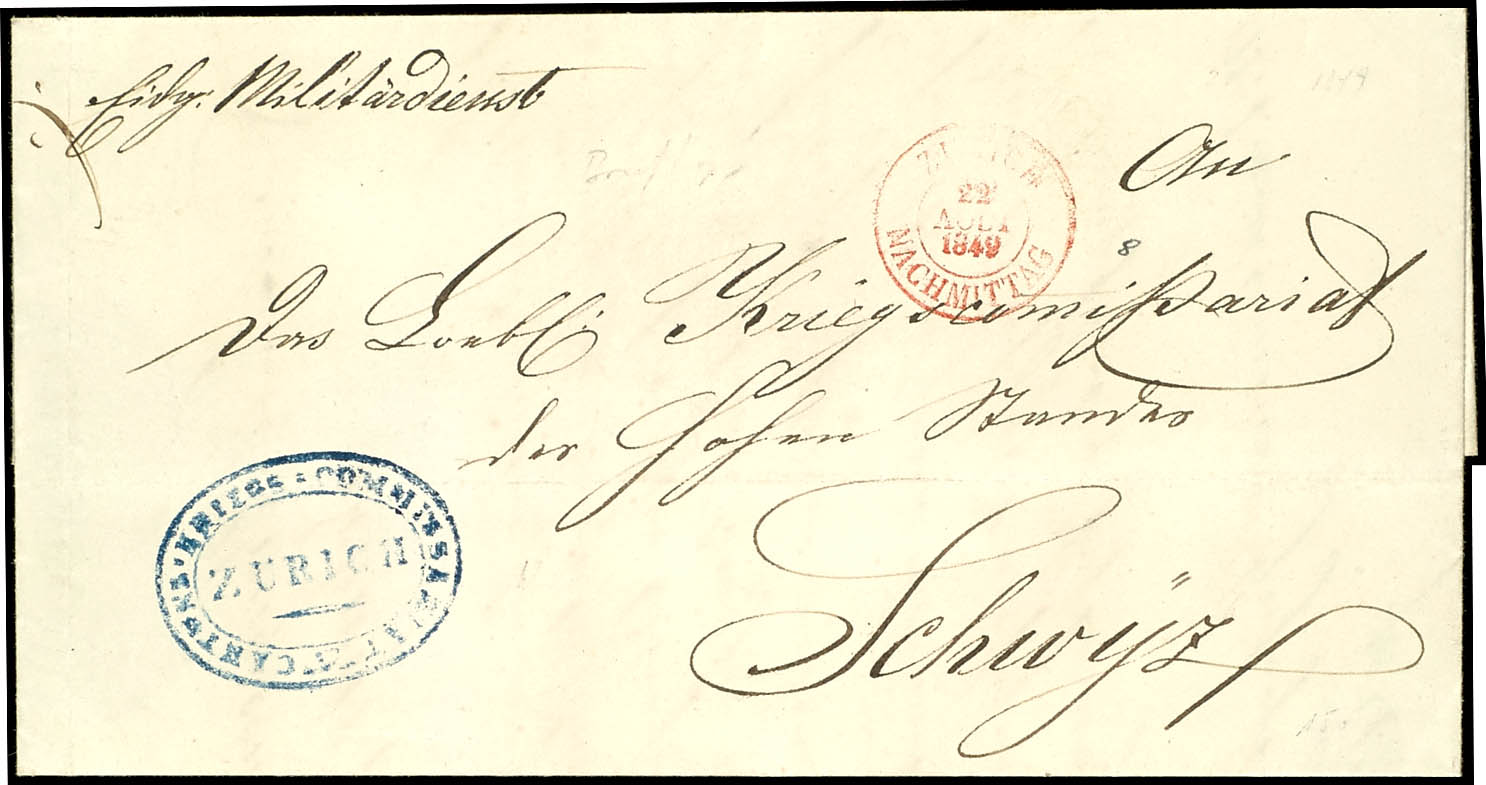 Eidg: Militärdienst
ZÜRICH
22
AOUT
1849
NACHMITTAG
An
8
Das Loebl: Kriegscomißariat
des Hohen Standes
Schwÿz
CANTONS-KRIEGS-COMMISSARIAT
ZÜRICH
1849
150